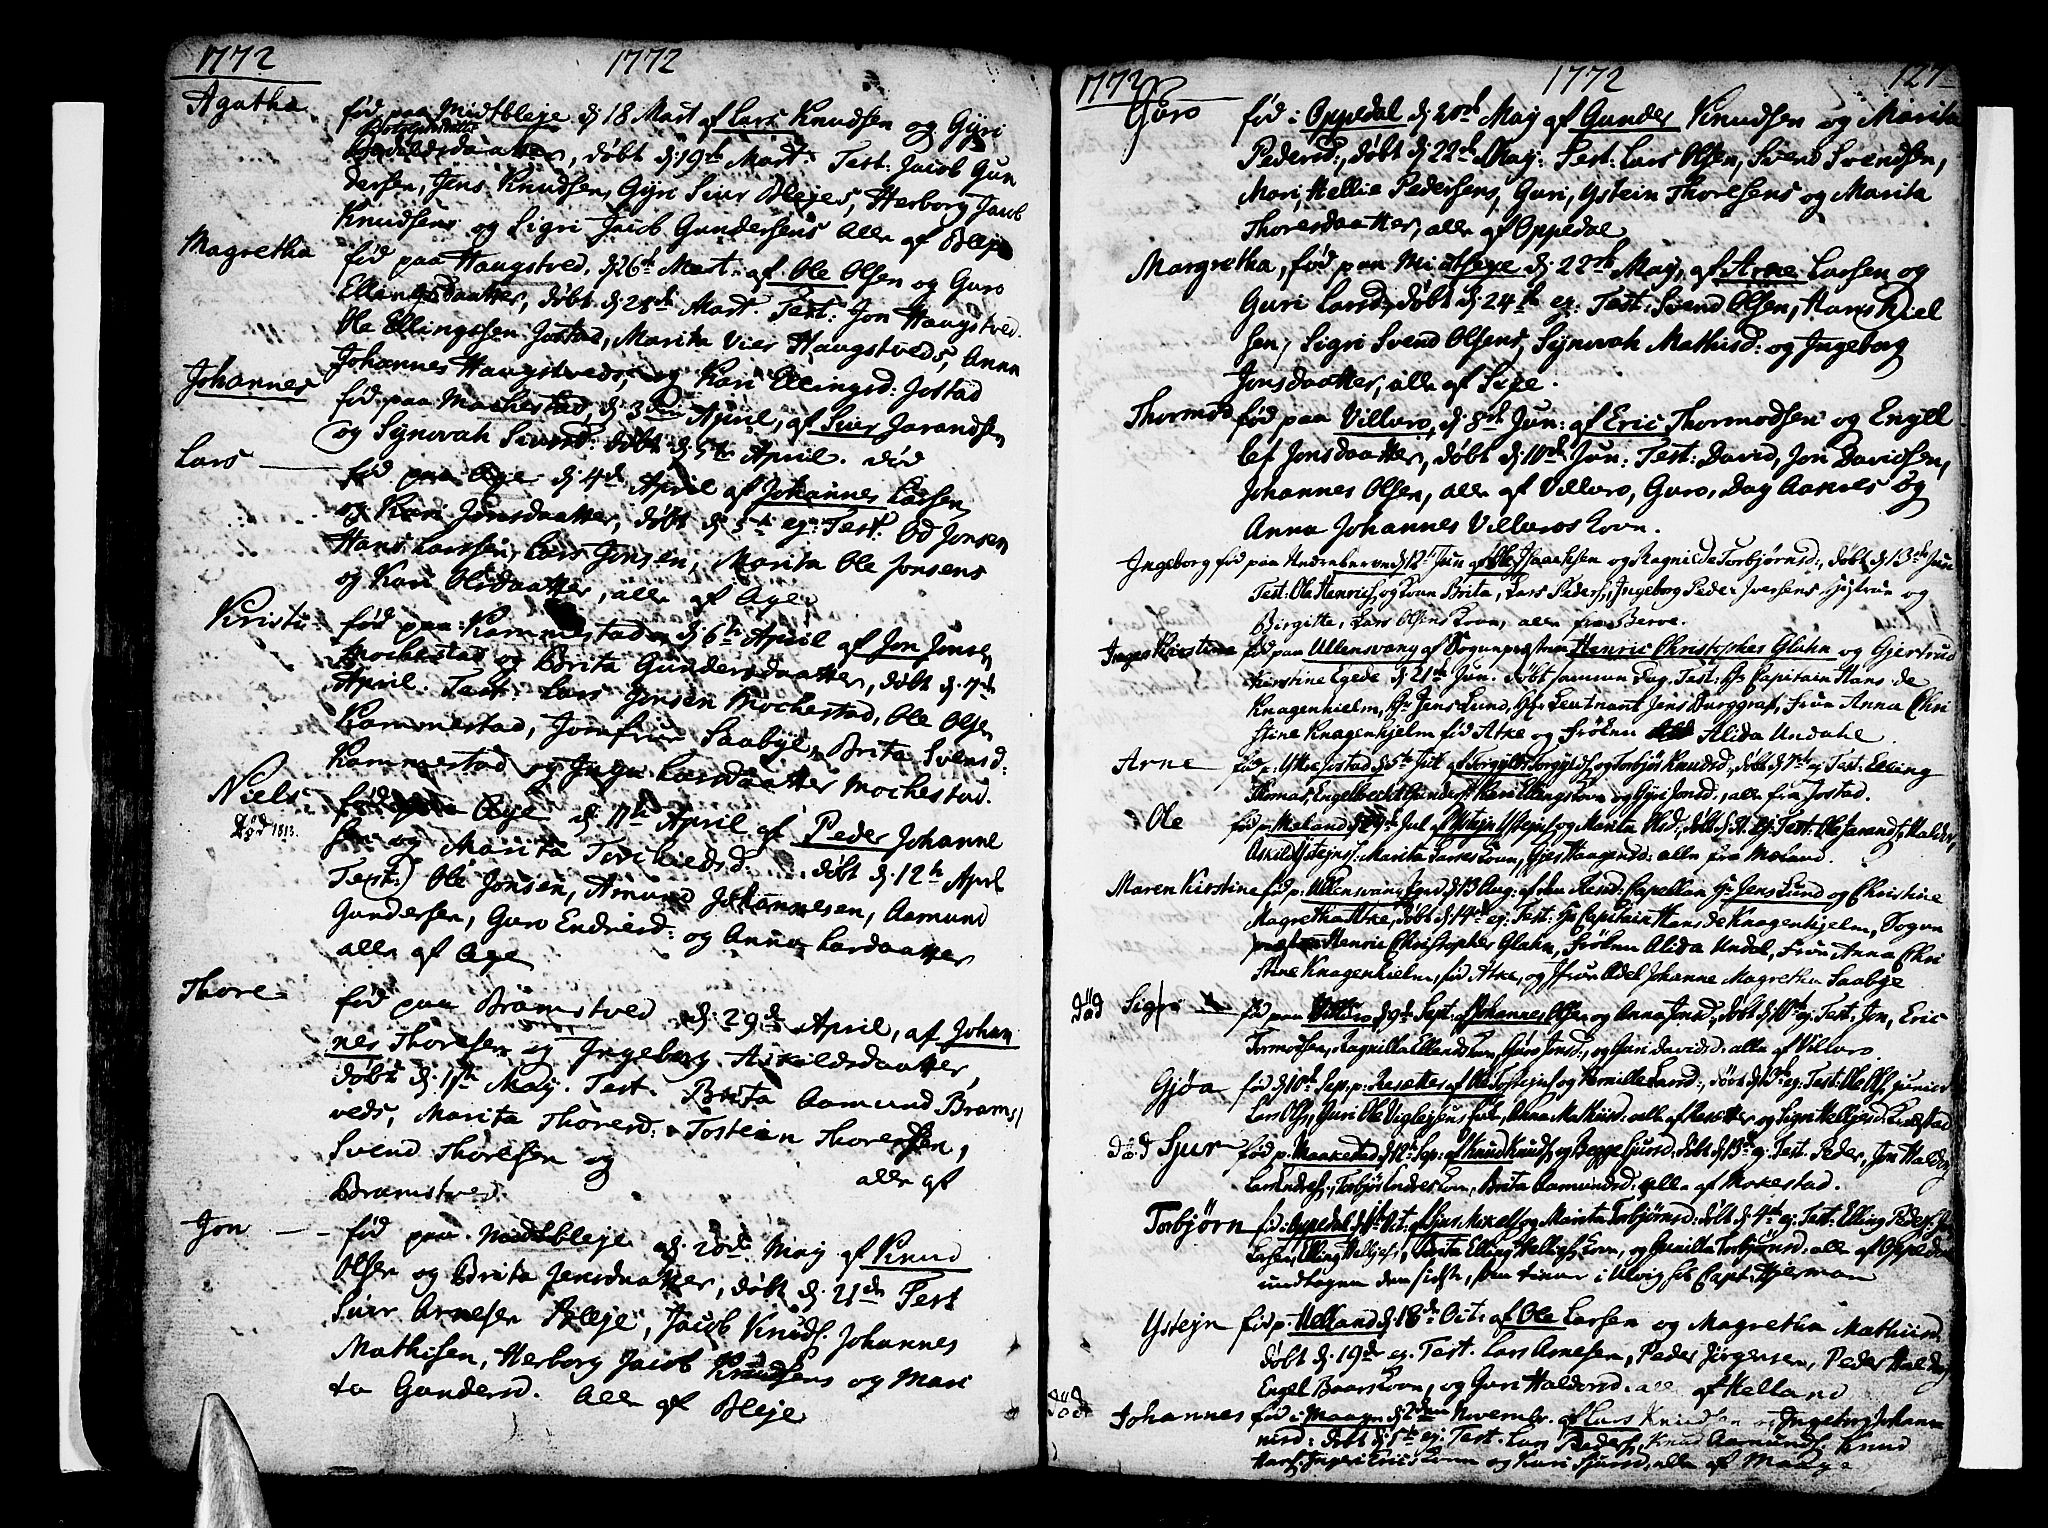 1772 1772
Agatha fød paa Midtbleje d 18 Mart af Lars Knudsen og Gÿri
Botolfsdatter, døbt d. 19de Mart. Test: Jacob Gun
dersen, Jens Knudsen, Gÿri Siur Blejes, Herborg Jacob
Knudsens og Sigri Jacob Gundersens Alle af Bleje
Magretha fød paa Haugstved, d. 26de Mart. af Ole Olsen og Guro
Ellingsdaatter, døbt d. 28de Mart. Test: Jon Haugstved.
Ole Ellingssen Jostad, Marita Vier Haugstveds, Anna
Johannes Haugstveds, og Kari Ellingsd: Jostad
Johannes fød paa Mochestad, d. 3de April, af Siur Jarandsen
og Synovah Siursd: døbt d. 5te April. død
Lars fød paa Age d. 4de April af Johannes Larsen
og Kari Jonsdaatter, døbt d. 5te ej: Test: Od Jonsen
Hans Larssen, Lars Jonsen, Marita Ole Jonsens
og Kari Olsdaatter, alle af Age
Kristi fød paa Kammestad d. 6te April af Jon Jonsen
Mochestad og Brita Gundersdaatter, døbt d. 7de
April. Test: Lars Jonsen Mochestad, Ole Olsen
Kammestad, Jomfrue Saabye, Brita Svensd:
Kammestad og Larsdaatter Mochestad.
Niels fød paa Age d. 11te April af Peder Johanne
død 1813. sen og Marita Torchieldsd: døbt d. 12te April
Test: Ole Jonsen, Amund Johannesen, Aamund
Gundersen, Guro Endresd: og Anna Larsdaatter
alle af Age
Thore fød paa Bramstved d: 29de April, af Johan
nes Thoresen og Ingeborg Askildsdaatter,
døbt d. 1ste May. Test. Brita Aamund Brams
veds, Marita Thoresd: Tosteian Thoresen,
Svend Thoresen og alle af
Bramstved.
Jon fød paa Midtbleje d. 20de May af Knud
Olsen og Brita Jensdaatter, døbt d. 21de Test
Siur Arnesen Bleje, Jacob Knuds. Johannes
Mathisen, Herborg Jacob Knudsens og Mari
ta Gundersd. Alle af Bleje
1772 1772 127
Guro fød i Oppedal d 20de May af Gunder Knudsen og Marita
Pedersd:, døbt d 22de May: Test: Lars Olsen, Svend Svendsen,
Mari, Hellie Pedersens, Guri, Ystein Thoresens og Marita
Thoresdaatter, alle af Oppedal
Margretha, fød paa d 22de May, af Arne Larsen og
Guri Larsd, døbt d. 24de ej: Test: Svend Olsen, Hans Kiel
sen, Sigri Svend Olsens, Synovah Mathisd: og Ingeborg
Jonsdaatter, alle af Sexe.
Thormod fød paa Villuro, d. 8de Jun: af Eric Thormodsen og Engel
lef Jonsdaatter, døbt d. 10de Jun: Test: David, Jon Davidsen,
Johannes Olsen, alle af Villuro, Guro, Dag Aanes og
Anna Johannes Villuros Kovn.
Ingeborg fød paa d. 12te Jun af Ole Isaaksen og Ragnilde Torbjørnsd:, døbt d. 13de Jun
Test: Ole Henrics: og Kovn Brita, Lars Peders:, Ingeborg Peder Iversens og
Birgitte, Lars Olsens Kovn, alle fra Berve.
Inger Kirstine fød paa Ullensvang af Sognpræsten Henric Christopher Glahn og Gjertrud
Kirstine Egede d. 21de Jun. døbt samme Dag. Test: Hr Capitain Hans de
Knagenhielm, Hr Jens Lund, Hr Leutnant Jens Burggraf, Frue Anna Chri
stine Knagenhjelm fød Atke og Frøken Alida Undahl.
Arne fød p. Ystie Jostad d. 5te Jul af Torgyls og Torbjør Knudsd., døbt d. 7de ej. Test: Elling
Thomas, Engelbrecht Gunders: Kari Ellings Kovn og Gÿri Jonsd., alle fra Jostad.
Ole fød p. Mæland d. 29de Jul af og Marita Olsd:, døbt d. 31. ej. Test: Ole Jarands: Halder,
Askild Ystejns: Marita Larses Kovn, alle fra Mæland.
Maren Kirstine fød p: Ullensvang d. 13 Aug: af den Resid: Capellan Hr Jens Lund og Christine
Magretha Atke, døbt d. 14de ej: Test: Hr Capitain Hans de Knagenhjelm, Sogn
præsten Henric Christopher Glahn, Frøken Alida Undal, Frue Anna Chri
stine Knagenhielm, fød Atke, og Jfrue Adel Johanne Magretha Saabye
død Sigri fød paa Villuro d. 9de Sept. af Johannes Olsen og Anna Jonsd:, døbt d. 10de ej: Test: Jon, Eric
Tormodsen, Ragnilla Kovn, Guro Jonsd:, og Guri Davidsd. alle af Villuro.
Gjøa fød d. 10de Sep. p. Resætter af Ole og Pernille Larsd:, døbt d. 13de ej: Test: Ole Ols junior
Lars Ols, Guri Ole Anna Mathisd: alle af Resætter og Sigri
død Sjur fød p. Maakestad d. 12te Sep. af Knud Knuds og døbt d. 13de ej. Test. Peder, Jon
Torbjør Endres Kovn, Brita Aamundsd: alle af Mokestad.
Torbjørn fød i Oppedal d. 1ste Oct. af og Marita Torbjørnsd: døbt d. 4de ej: Test: Elling Peders:
Larsen, Elling Brita Elling Kovn, og Gunilla Torbjørnsd. alle af Oppedal
undtagen den sidste, som tiener i Ulvig hos Capt: Hjerman
Ystejn fød p. Helland d. 18de Oct: af Ole Larsen og Magretha Mathisd.
døbt d. 19de ej. Test. Lars Arnesen, Peder Jørgensen, Peder
Engel Baars Kovn, og Guri Haldorsd. alle af Helland
død Johannes fød i Maage d. 2den November. af Lars Knudsen og Ingeborg Johan
nesd: døbt d. 5te ej: Test. Lars Peders, Knud Aamunds. Knud
Hans, Kovn og Kari Sjursd, alle af Maage